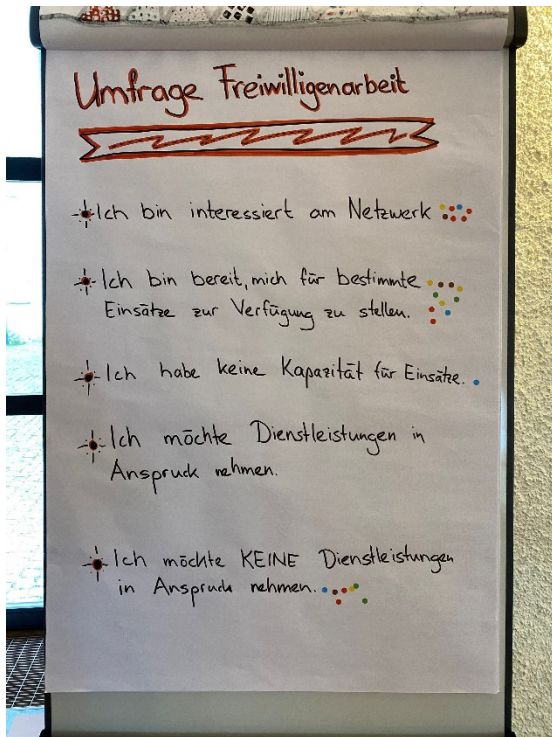 Umfrage Freiwilligenarbeit
Ich bin interessiert am Netzwerk
Ich bin bereit, mich für bestimmte
Einsätze zur Verfügung zu stellen.
Ich habe keine Kapazität für Einsätze.
Ich möchte Dienstleistungen in
Anspruch nehmen.
Ich möchte KEINE Dienstleistungen
in Anspruch nehmen.